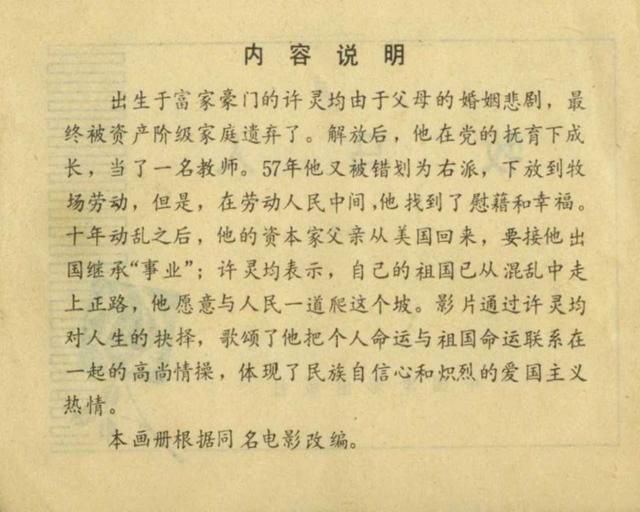 内容说明
出生于富家豪门的许灵均由于父母的婚姻悲剧，最
终被资产阶级家庭遗弃了。解放后，他在党的抚育下成
长，当了一名教师。57年他又被错划为右派，下放到牧
场劳动，但是，在劳动人民中间，他找到了慰藉和幸福。
十年动乱之后，他的资本家父亲从美国回来，要接他出
国继承“事业”；许灵均表示，自己的祖国已从混乱中走
上正路，他愿意与人民一道爬这个坡。影片通过许灵均
对人生的抉择，歌颂了他把个人命运与祖国命运联系在
一起的高尚情操，体现了民族自信心和炽烈的爱国主义
热情。
本画册根据同名电影改编。